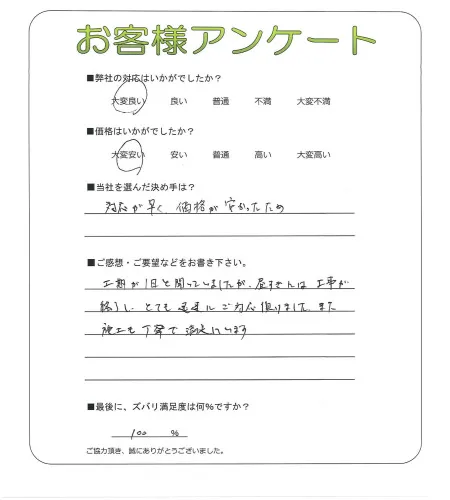 お客様アンケート
■弊社の対応はいかがでしたか？
大変良い 良い 普通 不満 大変不満
■価格はいかがでしたか？
大変安い 安い 普通 高い 大変高い
■当社を選んだ決め手は？
対応が早く、価格が安かったため
■ご感想・ご要望などをお書き下さい。
工期が1日と聞いていましたが、昼すぎには工事が
終了し、とても迅速にご対応頂けました。また
施工も丁寧で満足しています
■最後に、ズバリ満足度は何％ですか？
100 ％
ご協力頂き、誠にありがとうございました。